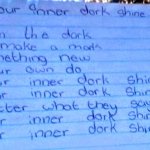 our inner dark shine
the dark
make a mark
mething new
ur own do
ur inner dark shin
ur inner dark shin
tter what they say
r inner dark shin
inner dark shin